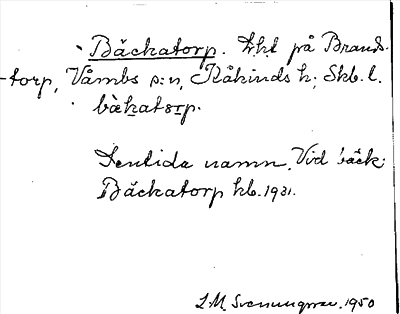 Bäckatorp. Lht på Brands-
torp, Våmbs s:n, Kåkinds h., Skb. l.
bækatɔrp.
Sentida namn. Vid bäck.
Bäckatorp kb. 1931.
L M. Svenungsson. 1950